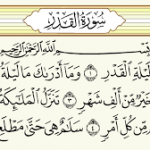 سُورَةُ القَدْرِ
بِسْمِ اللَّهِ الرَّحْمَٰنِ الرَّحِيمِ
لَيْلَةِ الْقَدْرِ ١ وَمَا أَدْرَىٰكَ مَا لَيْلَةُ
خَيْرٌ مِّنْ أَلْفِ شَهْرٍ ٣ تَنَزَّلُ الْمَلَٰئِكَةُ
مِّن كُلِّ أَمْرٍ ٤ سَلَٰمٌ هِىَ حَتَّىٰ مَطْلَعِ